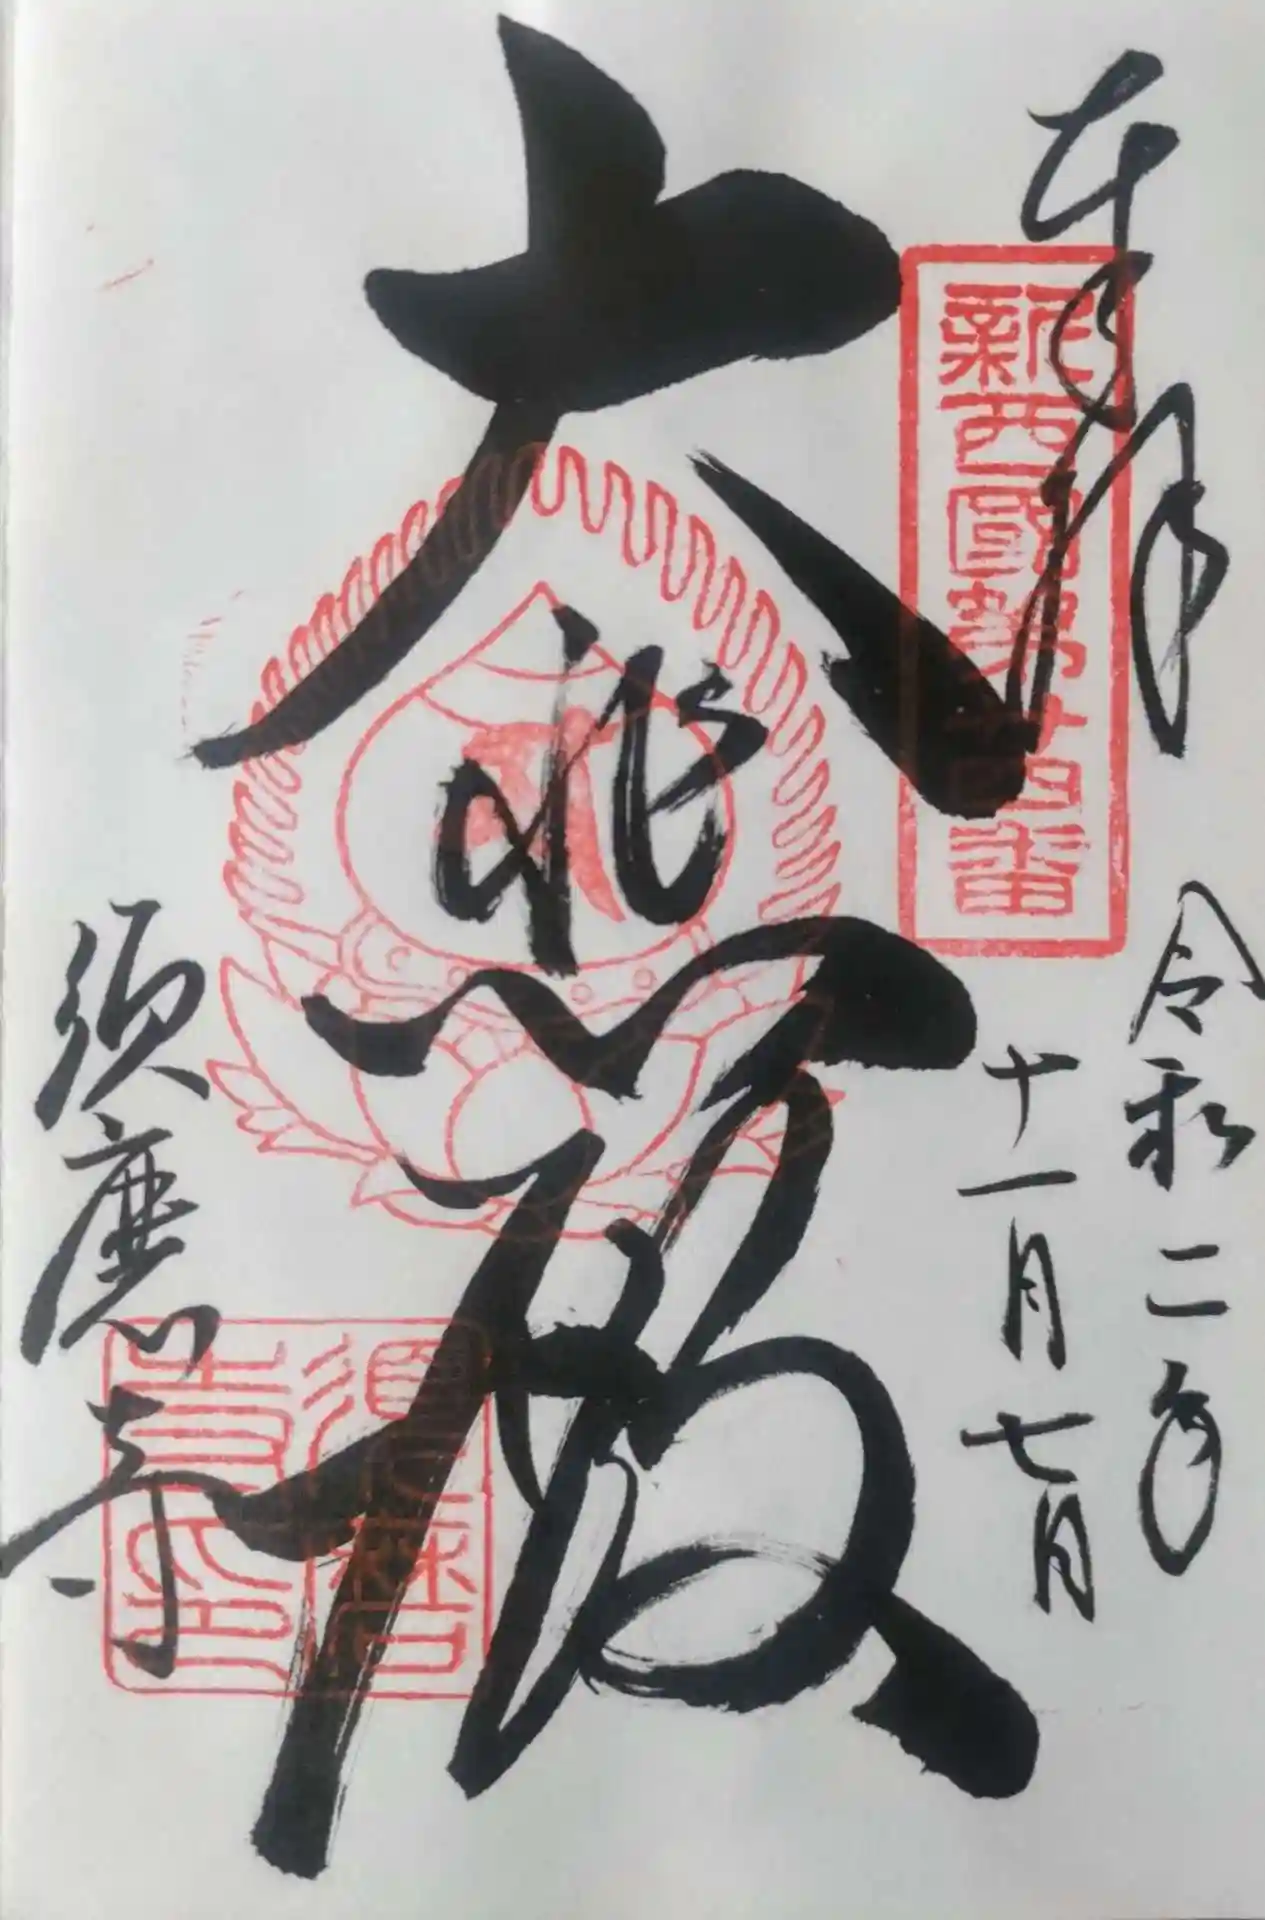 奉拝
新西國第廿四番
令和二年
十一月七日
大悲殿
須磨寺
須磨
寺印